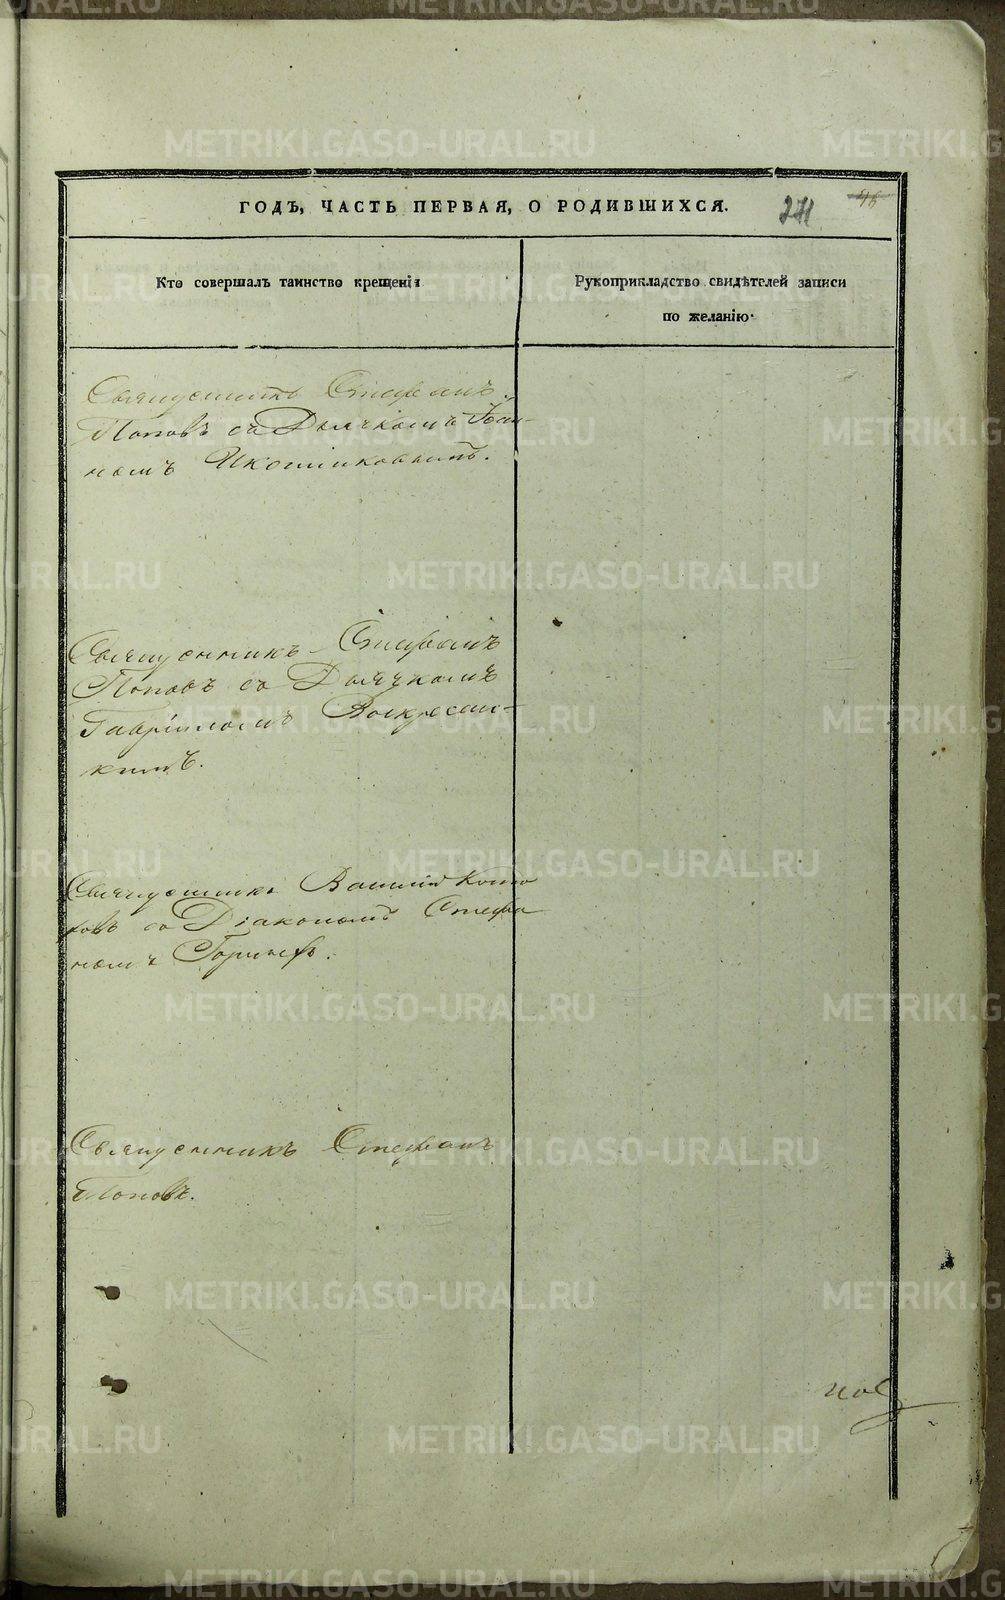 ГОДЪ, ЧАСТЬ ПЕРВАЯ, О РОДИВШИХСЯ.
271
46
Кто совершалъ таинство крещенія
Рукоприкладство свидѣтелей записи
по желанію·
Священникъ Стефанъ
Поповъ съ Дьячкомъ Іоан-
номъ Иконниковымъ.
Священникъ Стефанъ
Поповъ съ Дьячкомъ
Гавріиломъ Воскресен-
кимъ.
Священникъ Василій
овъ со Діакономъ Стефа
номъ
Священникъ Стефанъ
Поповъ.
METRIKI.GASO-URAL.RU